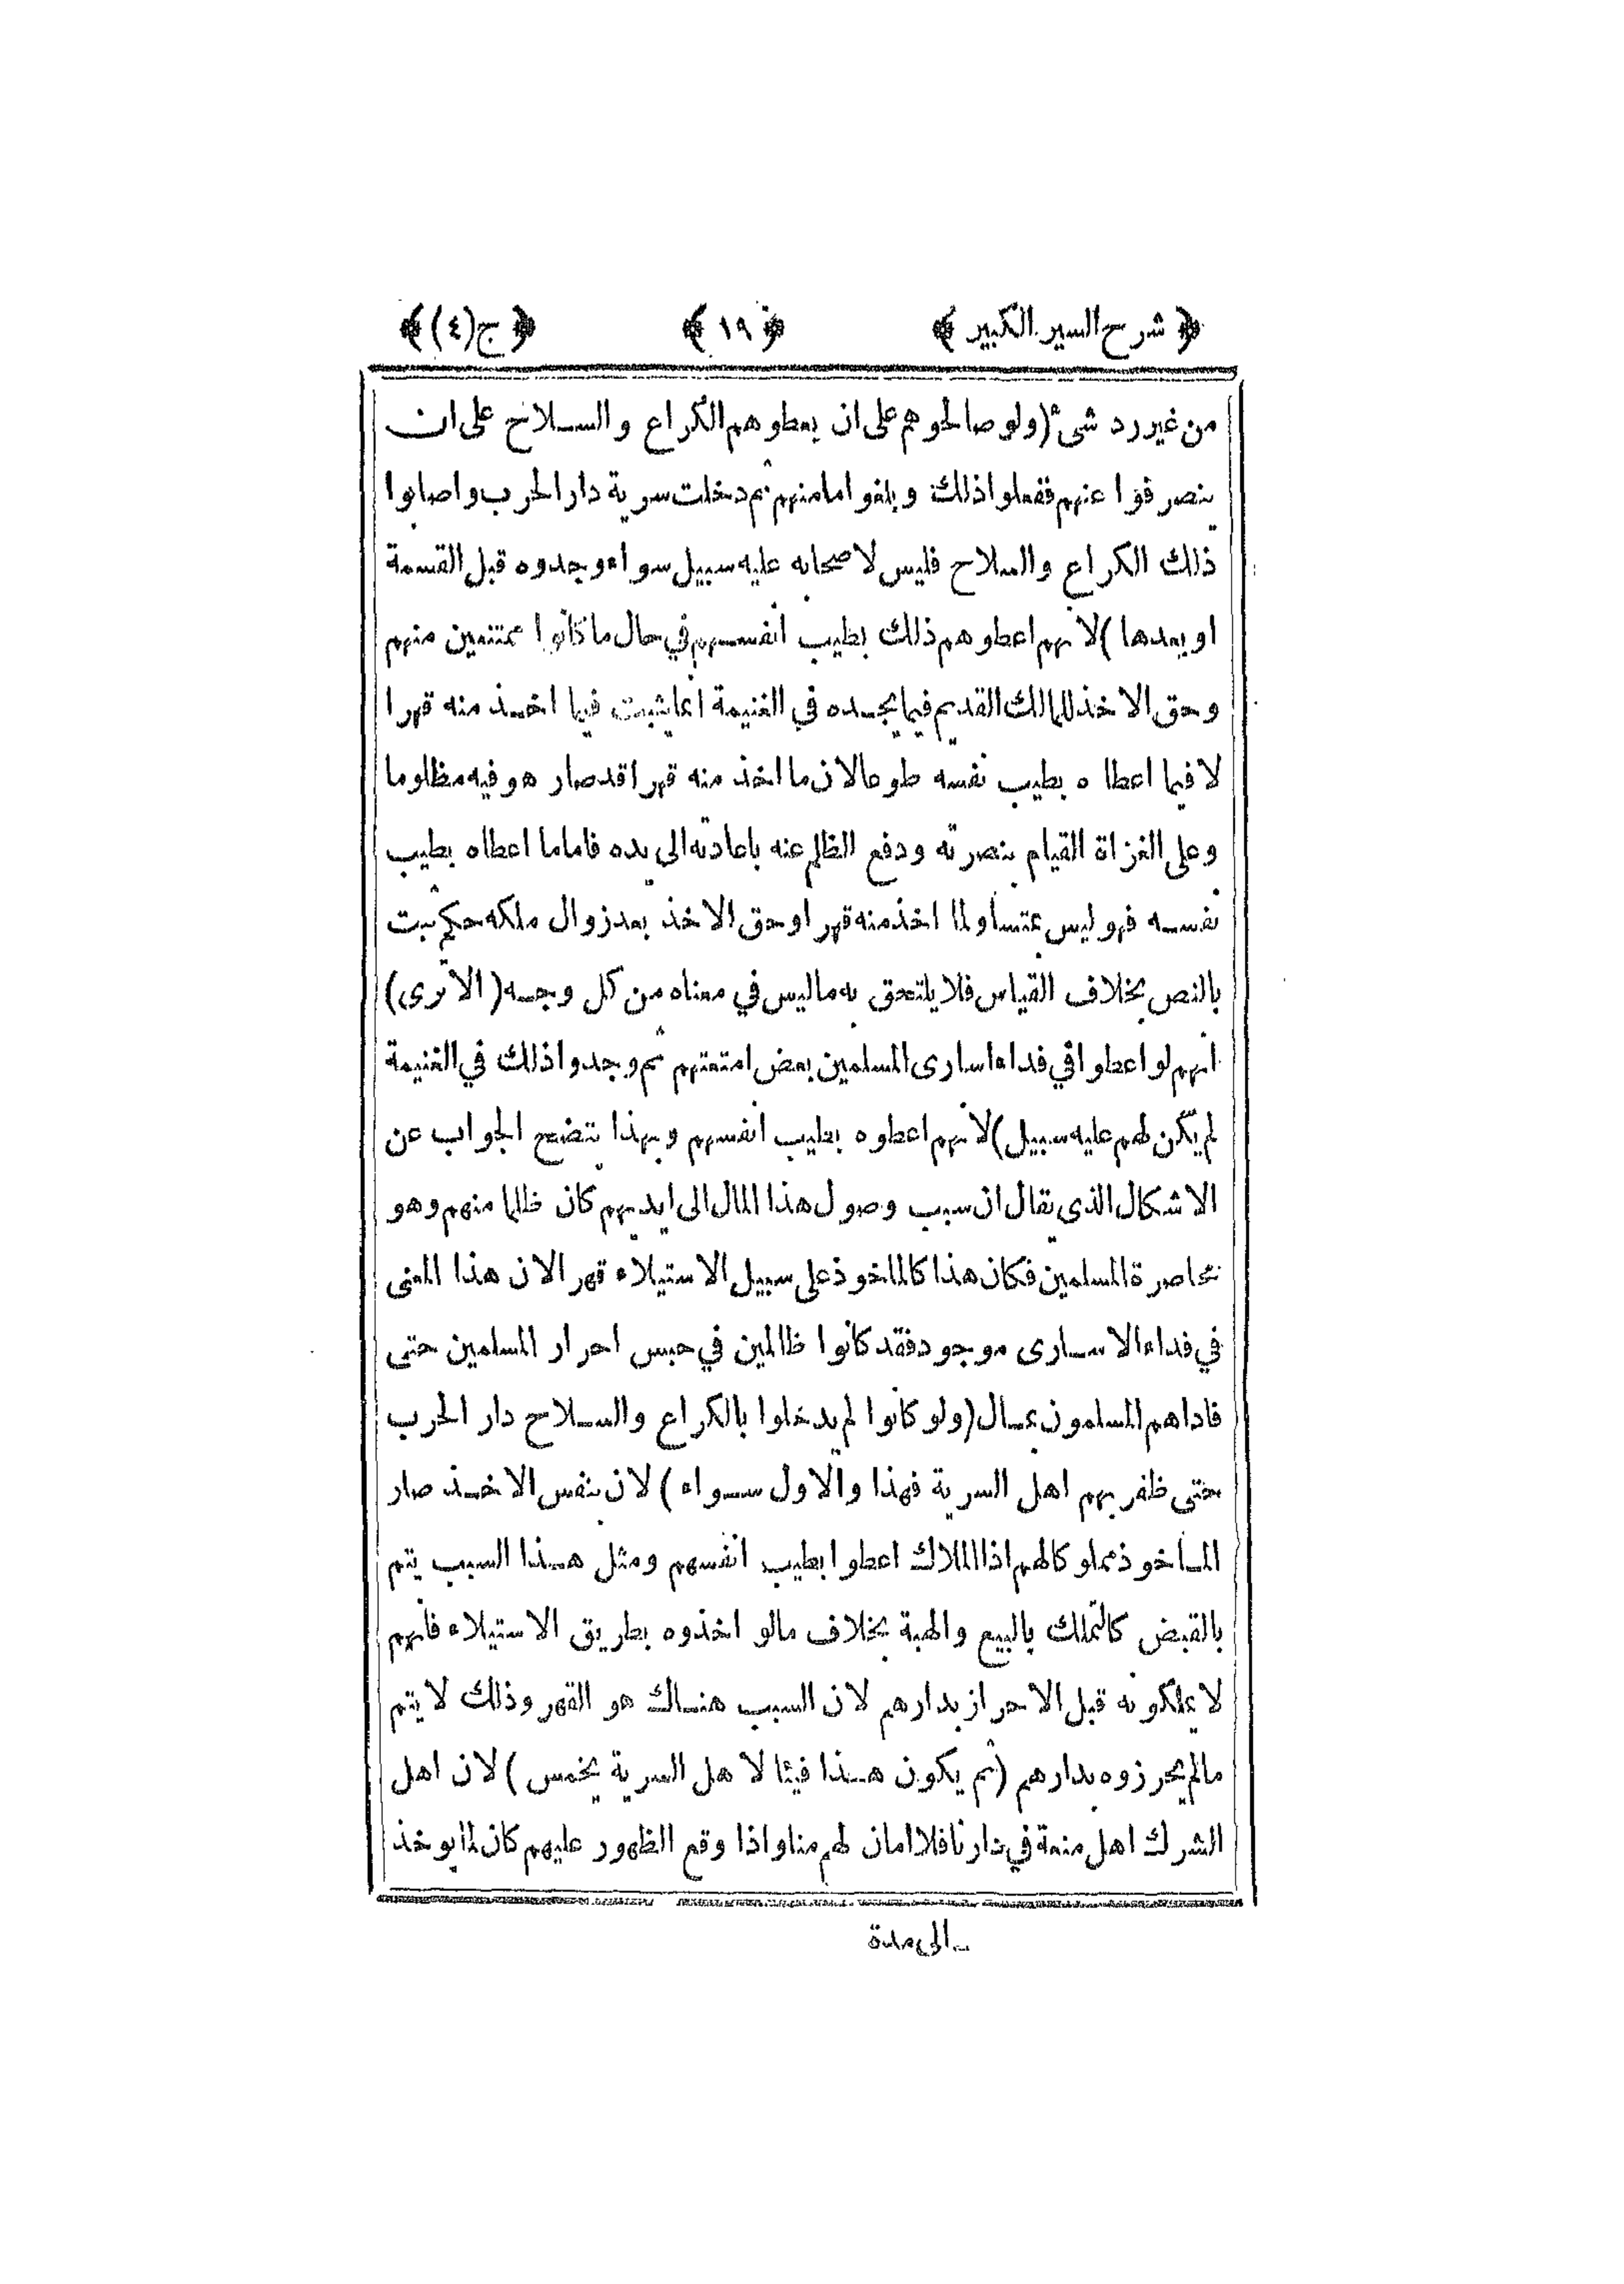 ﴿ شرح السير الكبير ﴾ ﴿ ١٩ ﴾ ﴿ ج(٤) ﴾
من غير رد شئ (ولو صالحوهم على ان يعطوهم الكراع والسلاح على ان
ينصرفوا عنهم ففعلوا ذلك وبلغوا مامنهم ثم دخلت سرية دار الحرب واصابوا
ذلك الكراع والسلاح فليس لاصحابه عليه سبيل سواء وجدوه قبل القسمة
او بعدها) لانهم اعطوهم ذلك بطيب انفسهم في حال ما كانوا ممتنعين منهم
وحق الاخذ للمالك القديم فيما يجده في الغنيمة انما يثبت فيما اخذ منه قهرا
لا فيما اعطاه بطيب نفسه طوعا لان ما اخذ منه قهرا قد صار هو فيه مظلوما
وعلى الغزاة القيام بنصرته ودفع الظلم عنه باعادته الى يده فاما ما اعطاه بطيب
نفسه فهو ليس بمتساو لما اخذ منه قهرا وحق الاخذ بعد زوال ملكه حكم ثبت
بالنص بخلاف القياس فلا يلتحق به ما ليس في معناه من كل وجه (الا ترى)
انهم لو اعطوا في فداء اسارى المسلمين بعض امتعتهم ثم وجدوا ذلك في الغنيمة
لم يكن لهم عليه سبيل) لانهم اعطوه بطيب انفسهم وبهذا يتضح الجواب عن
الاشكال الذي يقال ان سبب وصول هذا المال الى ايديهم كان ظلما منهم وهو
محاصرة المسلمين فكان هذا كالماخوذ على سبيل الاستيلاء قهرا لان هذا المعنى
في فداء الاسارى موجود فقد كانوا ظالمين في حبس احرار المسلمين حتى
فاداهم المسلمون بمال (ولو كانوا لم يدخلوا بالكراع والسلاح دار الحرب
حتى ظفر بهم اهل السرية فهذا والاول سواء) لان بنفس الاخذ صار
المأخوذ مملوكا لهم اذ الملاك اعطوا بطيب انفسهم ومثل هذا السبب يتم
بالقبض كالتملك بالبيع والهبة بخلاف ما لو اخذوه بطريق الاستيلاء فانهم
لا يملكونه قبل الاحراز بدارهم لان السبب هناك هو القهر وذلك لا يتم
ما لم يحرزوه بدارهم (ثم يكون هذا فيئا لاهل السرية يخمس) لان اهل
الشرك اهل منعة في دارنا فلا امان لهم منا واذا وقع الظهور عليهم كان لما يوخذ